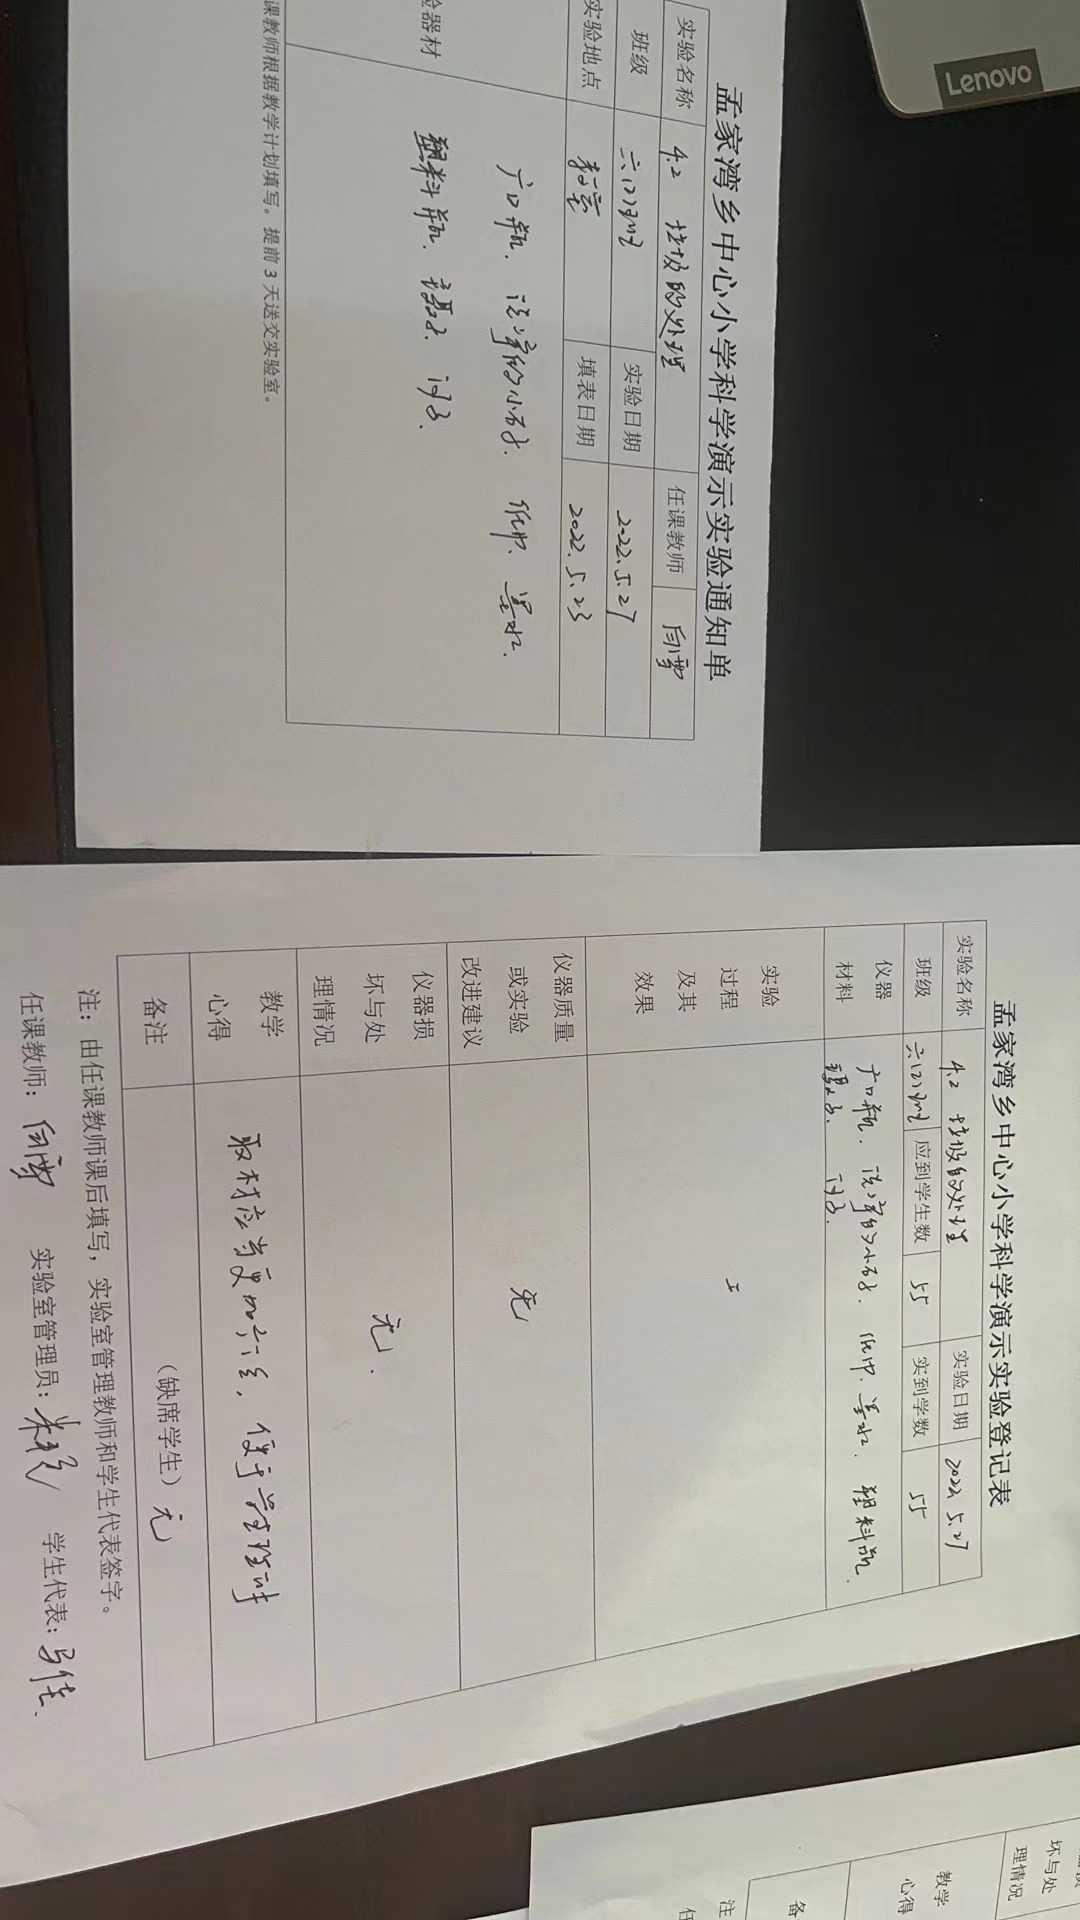 Lenovo
孟家湾乡中心小学科学演示实验通知单
实验名称 4.2 垃圾的处理 任课教师 白雪
班级 六(2)班 实验日期 2022.5.27
实验地点 教室 填表日期 2022.5.23
验器材
广口瓶、洗净的小石子、纸巾、墨水、
塑料瓶、镊子、
课教师根据教学计划填写。提前3天送交实验室。
孟家湾乡中心小学科学演示实验登记表
实验名称 4.2 垃圾的处理 实验日期 2022.5.27
班级 六(2)班 应到学生数 55 实到学数 55
仪器
材料
广口瓶、洗净的小石子、纸巾、墨水、塑料瓶、
镊子、
实验
过程
及其
效果
仪器质量
或实验
改进建议
无
仪器损
坏与处
理情况
无.
教学
心得
取材应当更加广泛,便于
备注 (缺席学生) 无
注:由任课教师课后填写,实验室管理教师和学生代表签字。
任课教师:白雪 实验室管理员: 学生代表:马佳
坏与处
理情况
教学
心得
备
注
任